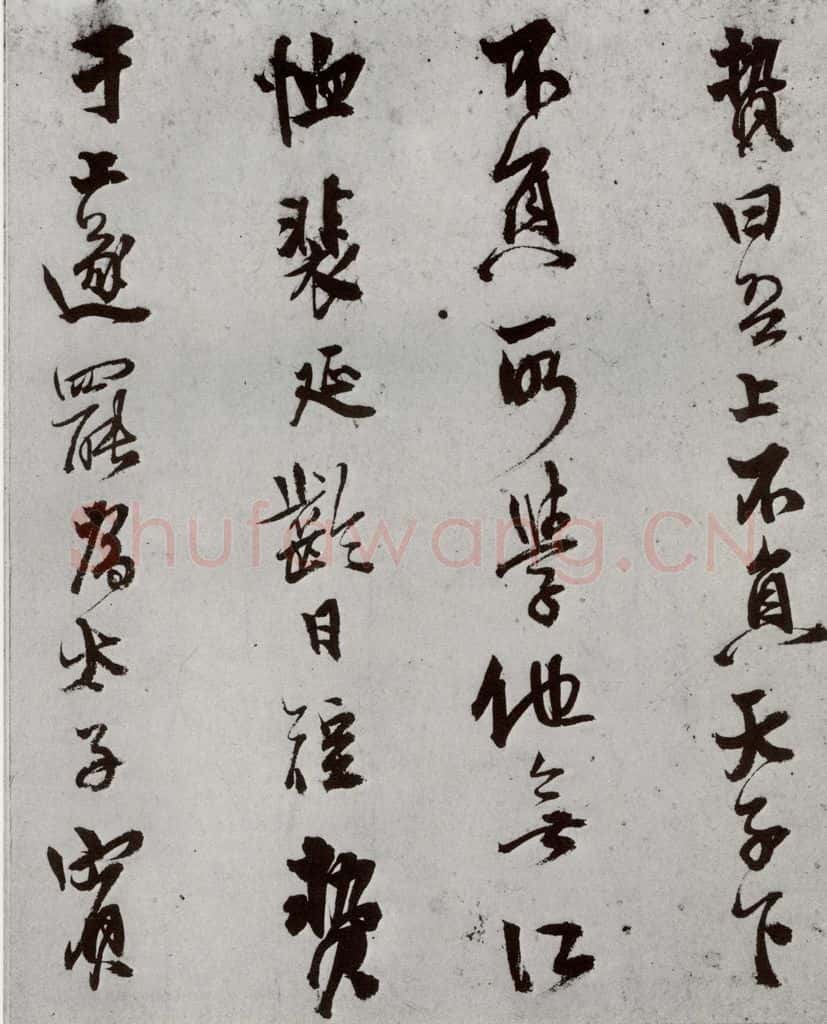 贄曰吾上不負天子下
不負所學他無所
恤裴延齡日短贄
于上遂罷為太子賓
Shufawang.CN